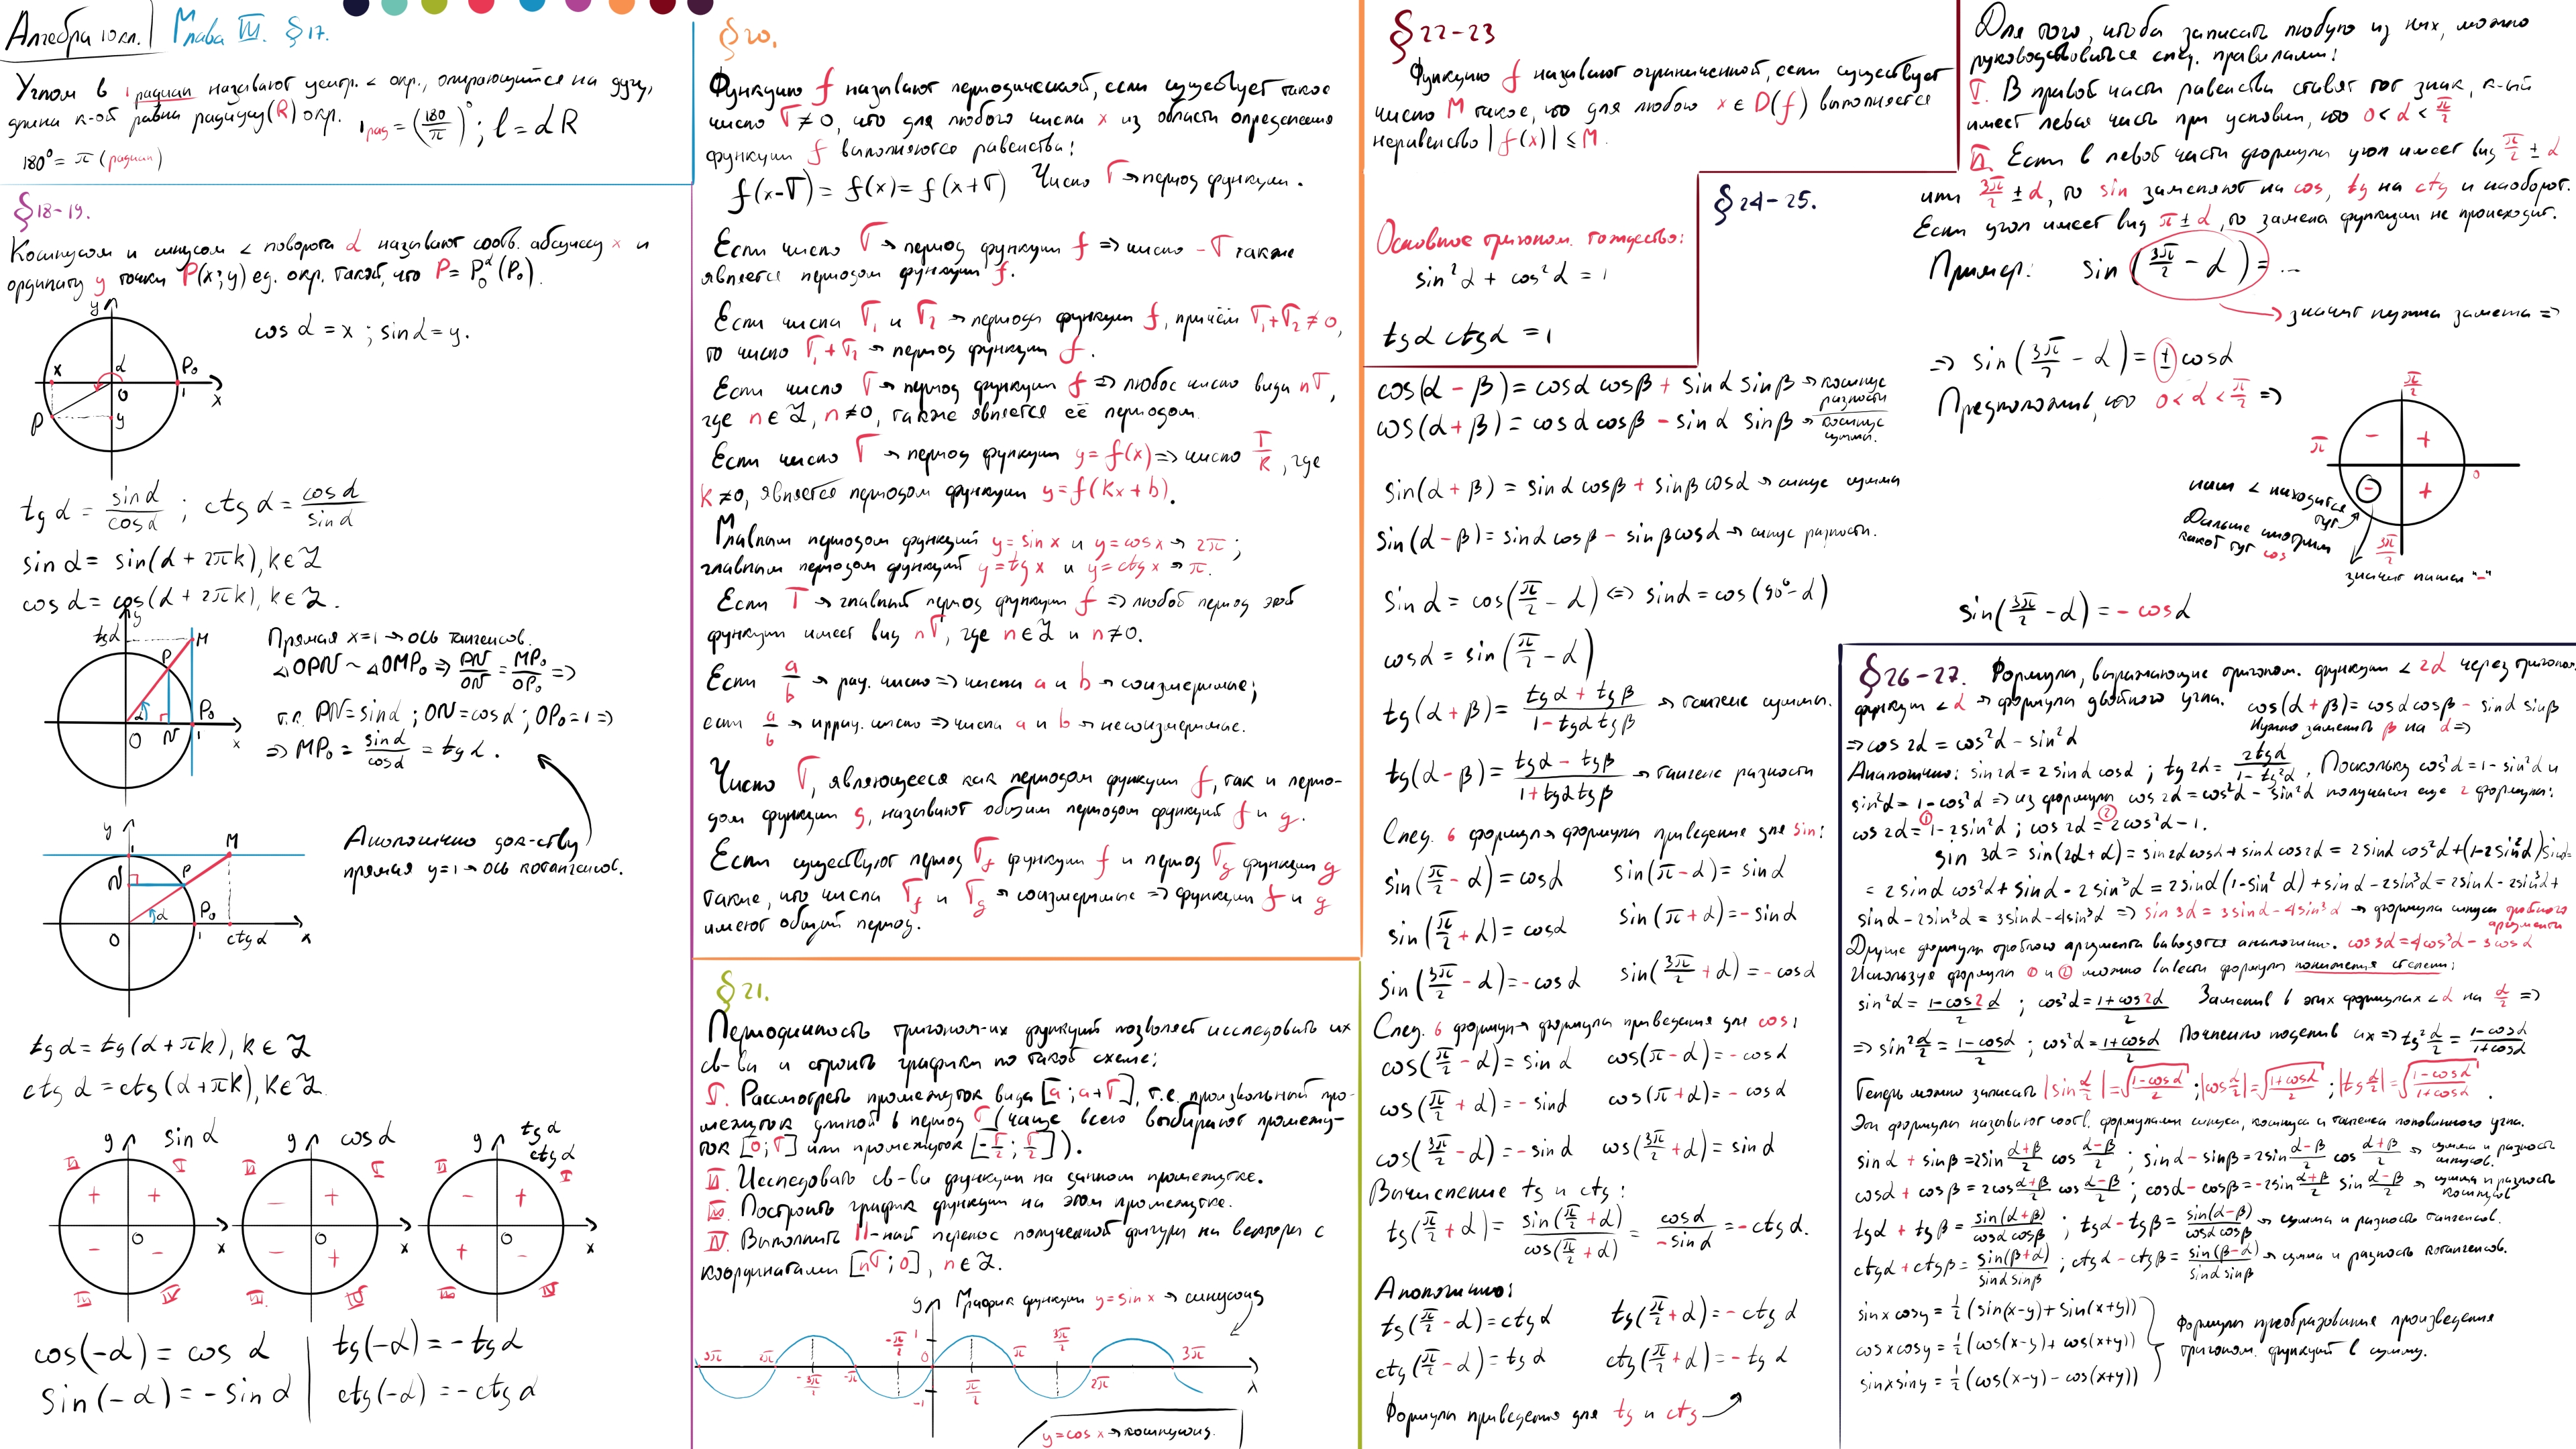 Алгебра 10 кл. Глава III. §17.
Углом в 1 радиан называют центр. < окр., опирающийся на дугу,
длина к-ой равна радиусу (R) окр. 1 рад = (180/π)°; l = αR
180° = π (радиан)
§18-19.
Косинусом и синусом < поворота α называют соотв. абсциссу x и
ординату y точки P(x; y) ед. окр. такой, что P = P₀^α (P₀).
cos α = x ; sin α = y.
y
x α P₀
0 1 x
P y
tg α = sin α/cos α ; ctg α = cos α/sin α
sin α = sin(α + 2πk), k ∈ Z
cos α = cos(α + 2πk), k ∈ Z.
tg α M
P
α P₀
O N 1 x
Прямая x=1 → ось тангенсов.
△OPN ~ △OMP₀ => PN/ON = MP₀/OP₀ =>
т.к. PN = sin α ; ON = cos α ; OP₀ = 1 =>
=> MP₀ = sin α/cos α = tg α.
Аналогично док-ству
прямая y=1 → ось котангенсов.
y M
1
N P
α P₀
O 1 ctg α x
tg α = tg(α + πk), k ∈ Z
ctg α = ctg(α + πk), k ∈ Z
y sin α
II I
+ +
O x
- -
III IV
y cos α
II I
- +
O x
- +
III IV
y tg α
ctg α
II I
- +
O x
+ -
III IV
cos(-α) = cos α | tg(-α) = -tg α
sin(-α) = -sin α | ctg(-α) = -ctg α
§20.
Функцию f называют периодической, если существует такое
число T ≠ 0, что для любого числа x из области определения
функции f выполняются равенства:
f(x-T) = f(x) = f(x+T) Число T → период функции.
Если число T → период функции f => число -T также
является периодом функции f.
Если числа T₁ и T₂ → периоды функции f, причём T₁+T₂ ≠ 0,
то число T₁+T₂ → период функции f.
Если число T → период функции f => любое число вида nT,
где n ∈ Z, n ≠ 0, также является её периодом.
Если число T → период функции y = f(x) => число T/k, где
k ≠ 0, является периодом функции y = f(kx + b).
Главным периодом функций y = sin x и y = cos x → 2π;
главным периодом функций y = tg x и y = ctg x → π.
Если T → главный период функции f => любой период этой
функции имеет вид nT, где n ∈ Z и n ≠ 0.
Если a/b → рац. число => числа a и b → соизмеримые;
если a/b → иррац. число => числа a и b → несоизмеримые.
Число T, являющееся как периодом функции f, так и перио-
дом функции g, называют общим периодом функций f и g.
Если существуют период T_f функции f и период T_g функции g
такие, что числа T_f и T_g → соизмеримые => функции f и g
имеют общий период.
§21.
Периодичность тригоном-их функций позволяет исследовать их
св-ва и строить графики по такой схеме:
I. Рассмотреть промежуток вида [a; a+T], т.е. произвольный про-
межуток длиной в период T (чаще всего выбирают промежу-
ток [0; T] или промежуток [-T/2; T/2]).
II. Исследовать св-ва функции на данном промежутке.
III. Построить график функции на этом промежутке.
IV. Выполнить II-ный перенос полученной фигуры на векторы с
координатами [nT; 0], n ∈ Z.
y График функции y = sin x → синусоида
3π 2π -3π/2 -π -π/2 1 0 -1 π/2 π 3π/2 2π 3π x
y = cos x → косинусоид.
§22-23
Функцию f называют ограниченной, если существует
число M такое, что для любого x ∈ D(f) выполняется
неравенство |f(x)| ≤ M.
Основное тригоном. тождество:
sin²α + cos²α = 1
tg α ctg α = 1
§24-25.
cos(α - β) = cos α cos β + sin α sin β → косинус разности
cos(α + β) = cos α cos β - sin α sin β → косинус суммы.
sin(α + β) = sin α cos β + sin β cos α → синус суммы
sin(α - β) = sin α cos β - sin β cos α → синус разности.
sin α = cos(π/2 - α) <=> sin α = cos(90° - α)
cos α = sin(π/2 - α)
tg(α + β) = (tg α + tg β)/(1 - tg α tg β) → тангенс суммы.
tg(α - β) = (tg α - tg β)/(1 + tg α tg β) → тангенс разности
След. 6 формул → формулы приведения для sin:
sin(π/2 - α) = cos α sin(π - α) = sin α
sin(π/2 + α) = cos α sin(π + α) = -sin α
sin(3π/2 - α) = -cos α sin(3π/2 + α) = -cos α
След. 6 формул → формулы приведения для cos:
cos(π/2 - α) = sin α cos(π - α) = -cos α
cos(π/2 + α) = -sin α cos(π + α) = -cos α
cos(3π/2 - α) = -sin α cos(3π/2 + α) = sin α
Вычисление tg и ctg:
tg(π/2 + α) = sin(π/2 + α)/cos(π/2 + α) = cos α/-sin α = -ctg α.
Аналогично:
tg(π/2 - α) = ctg α tg(π/2 + α) = -ctg α
ctg(π/2 - α) = tg α ctg(π/2 + α) = -tg α
Формулы приведения для tg и ctg
Для того, чтобы записать любую из них, можно
руководствоваться след. правилами:
I. В правой части равенства ставят тот знак, к-ый
имеет левая часть при условии, что 0 < α < π/2
II. Если в левой части формулы угол имеет вид π/2 ± α
или 3π/2 ± α, то sin заменяют на cos, tg на ctg и наоборот.
Если угол имеет вид π ± α, то замена функции не происходит.
Пример: sin(3π/2 - α) = ...
значит нужна замена =>
=> sin(3π/2 - α) = ± cos α
Предположив, что 0 < α < π/2 =>
π/2
π - + 0
- +
3π/2
наш < находится тут
Дальше смотрим
какой тут cos
значит пишем "-"
sin(3π/2 - α) = -cos α
§26-27. Формулы, выражающие тригоном. функции < 2α через тригоном.
функции < α → формулы двойного угла. cos(α + β) = cos α cos β - sin α sin β
Нужно заменить β на α =>
=> cos 2α = cos²α - sin²α
Аналогично: sin 2α = 2 sin α cos α ; tg 2α = 2tg α/(1 - tg²α). Поскольку cos²α = 1 - sin²α и
sin²α = 1 - cos²α => из формулы cos 2α = cos²α - sin²α получаем еще 2 формулы:
cos 2α =① 1 - 2sin²α ; cos 2α =② 2cos²α - 1.
sin 3α = sin(2α + α) = sin 2α cos α + sin α cos 2α = 2 sin α cos²α + (1 - 2 sin²α) sin α =
= 2 sin α cos²α + sin α - 2 sin³α = 2 sin α (1 - sin²α) + sin α - 2 sin³α = 2 sin α - 2 sin³α +
sin α - 2 sin³α = 3 sin α - 4 sin³α => sin 3α = 3 sin α - 4 sin³α → формула синуса тройного
аргумента
Другие формулы тройного аргумента выводятся аналогично. cos 3α = 4cos³α - 3cos α
Используя формулы ① и ② можно вывести формулы понижения степени:
sin²α = (1 - cos 2α)/2 ; cos²α = (1 + cos 2α)/2 Заменив в этих формулах < α на α/2 =>
=> sin² α/2 = (1 - cos α)/2 ; cos²α = (1 + cos α)/2 Почленно поделив их => tg² α/2 = (1 - cos α)/(1 + cos α)
Теперь можно записать |sin α/2| = √((1 - cos α)/2) ; |cos α/2| = √((1 + cos α)/2) ; |tg α/2| = √((1 - cos α)/(1 + cos α)).
Эти формулы называют соотв. формулами синуса, косинуса и тангенса половинного угла.
sin α + sin β = 2sin (α+β)/2 cos (α-β)/2 ; sin α - sin β = 2sin (α-β)/2 cos (α+β)/2 → сумма и разность синусов.
cos α + cos β = 2cos (α+β)/2 cos (α-β)/2 ; cos α - cos β = -2sin (α+β)/2 sin (α-β)/2 → сумма и разность косинусов
tg α + tg β = sin(α+β)/(cos α cos β) ; tg α - tg β = sin(α-β)/(cos α cos β) → сумма и разность тангенсов.
ctg α + ctg β = sin(β+α)/(sin α sin β) ; ctg α - ctg β = sin(β-α)/(sin α sin β) → сумма и разность котангенсов.
sin x cos y = ½ (sin(x-y) + sin(x+y))
cos x cos y = ½ (cos(x-y) + cos(x+y))
sin x sin y = ½ (cos(x-y) - cos(x+y))
Формулы преобразования произведения
тригоном. функций в сумму.